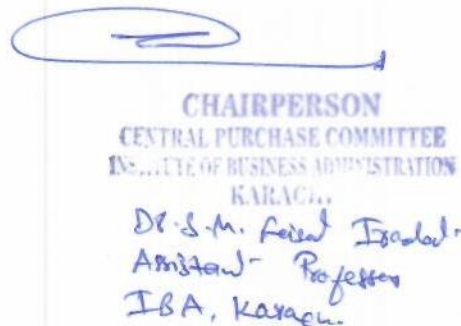 CHAIRPERSON
CENTRAL PURCHASE COMMITTEE
INS...TUTE OF BUSINESS ADMINISTRATION
KARACHI.
Dr. S. M. Faisal
Assistant Professor
IBA, Karachi.